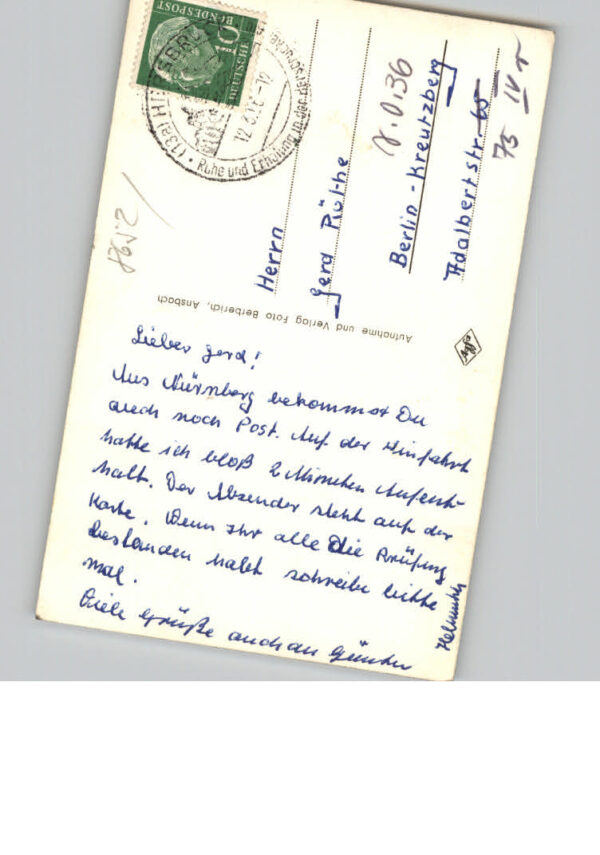 Lieber Gerd!
Aus Nürnberg bekommst Du
auch noch Post. Auf der Hinfahrt
hatte ich bloß 2 Minuten Aufent-
halt. Der Absender steht auf der
Karte. Wenn Ihr alle die Prüfung
bestanden habt schreibe bitte
mal.
Viele Grüße auch an Günter
Helmuth
Aufnahme und Verlag Foto Berberich, Ansbach
Herrn
Gerd
Berlin-Kreutzberg
Adalbertstr. 65
75 IV r
DEUTSCHE
BUNDESPOST
10
(13a)
Ruhe und Erholung in der